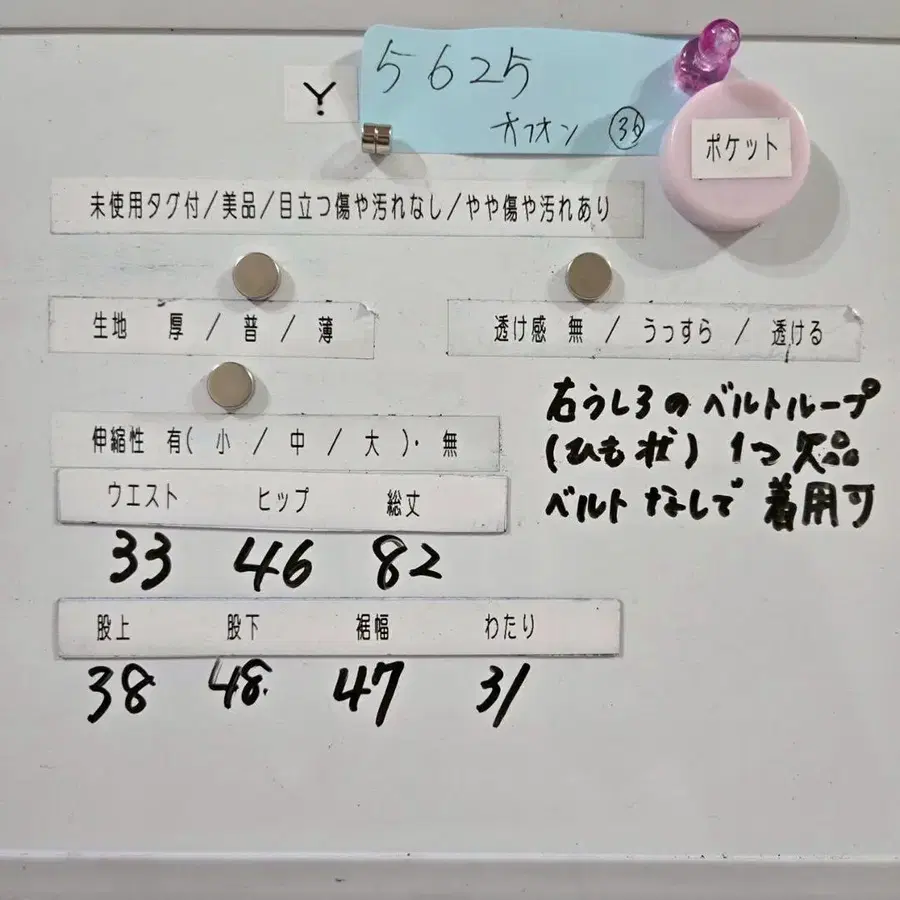 5625
Y
オフオン ㊱
ポケット
未使用タグ付/美品/目立つ傷や汚れなし/やや傷や汚れあり
生地 厚 / 普 / 薄
透け感 無 / うっすら / 透ける
伸縮性 有( 小 / 中 / 大 )・無
右うしろのベルトループ
(ひも状) 1つ欠品
ベルトなしで着用可
ウエスト ヒップ 総丈
33 46 82
股上 股下 裾幅 わたり
38 48 47 31